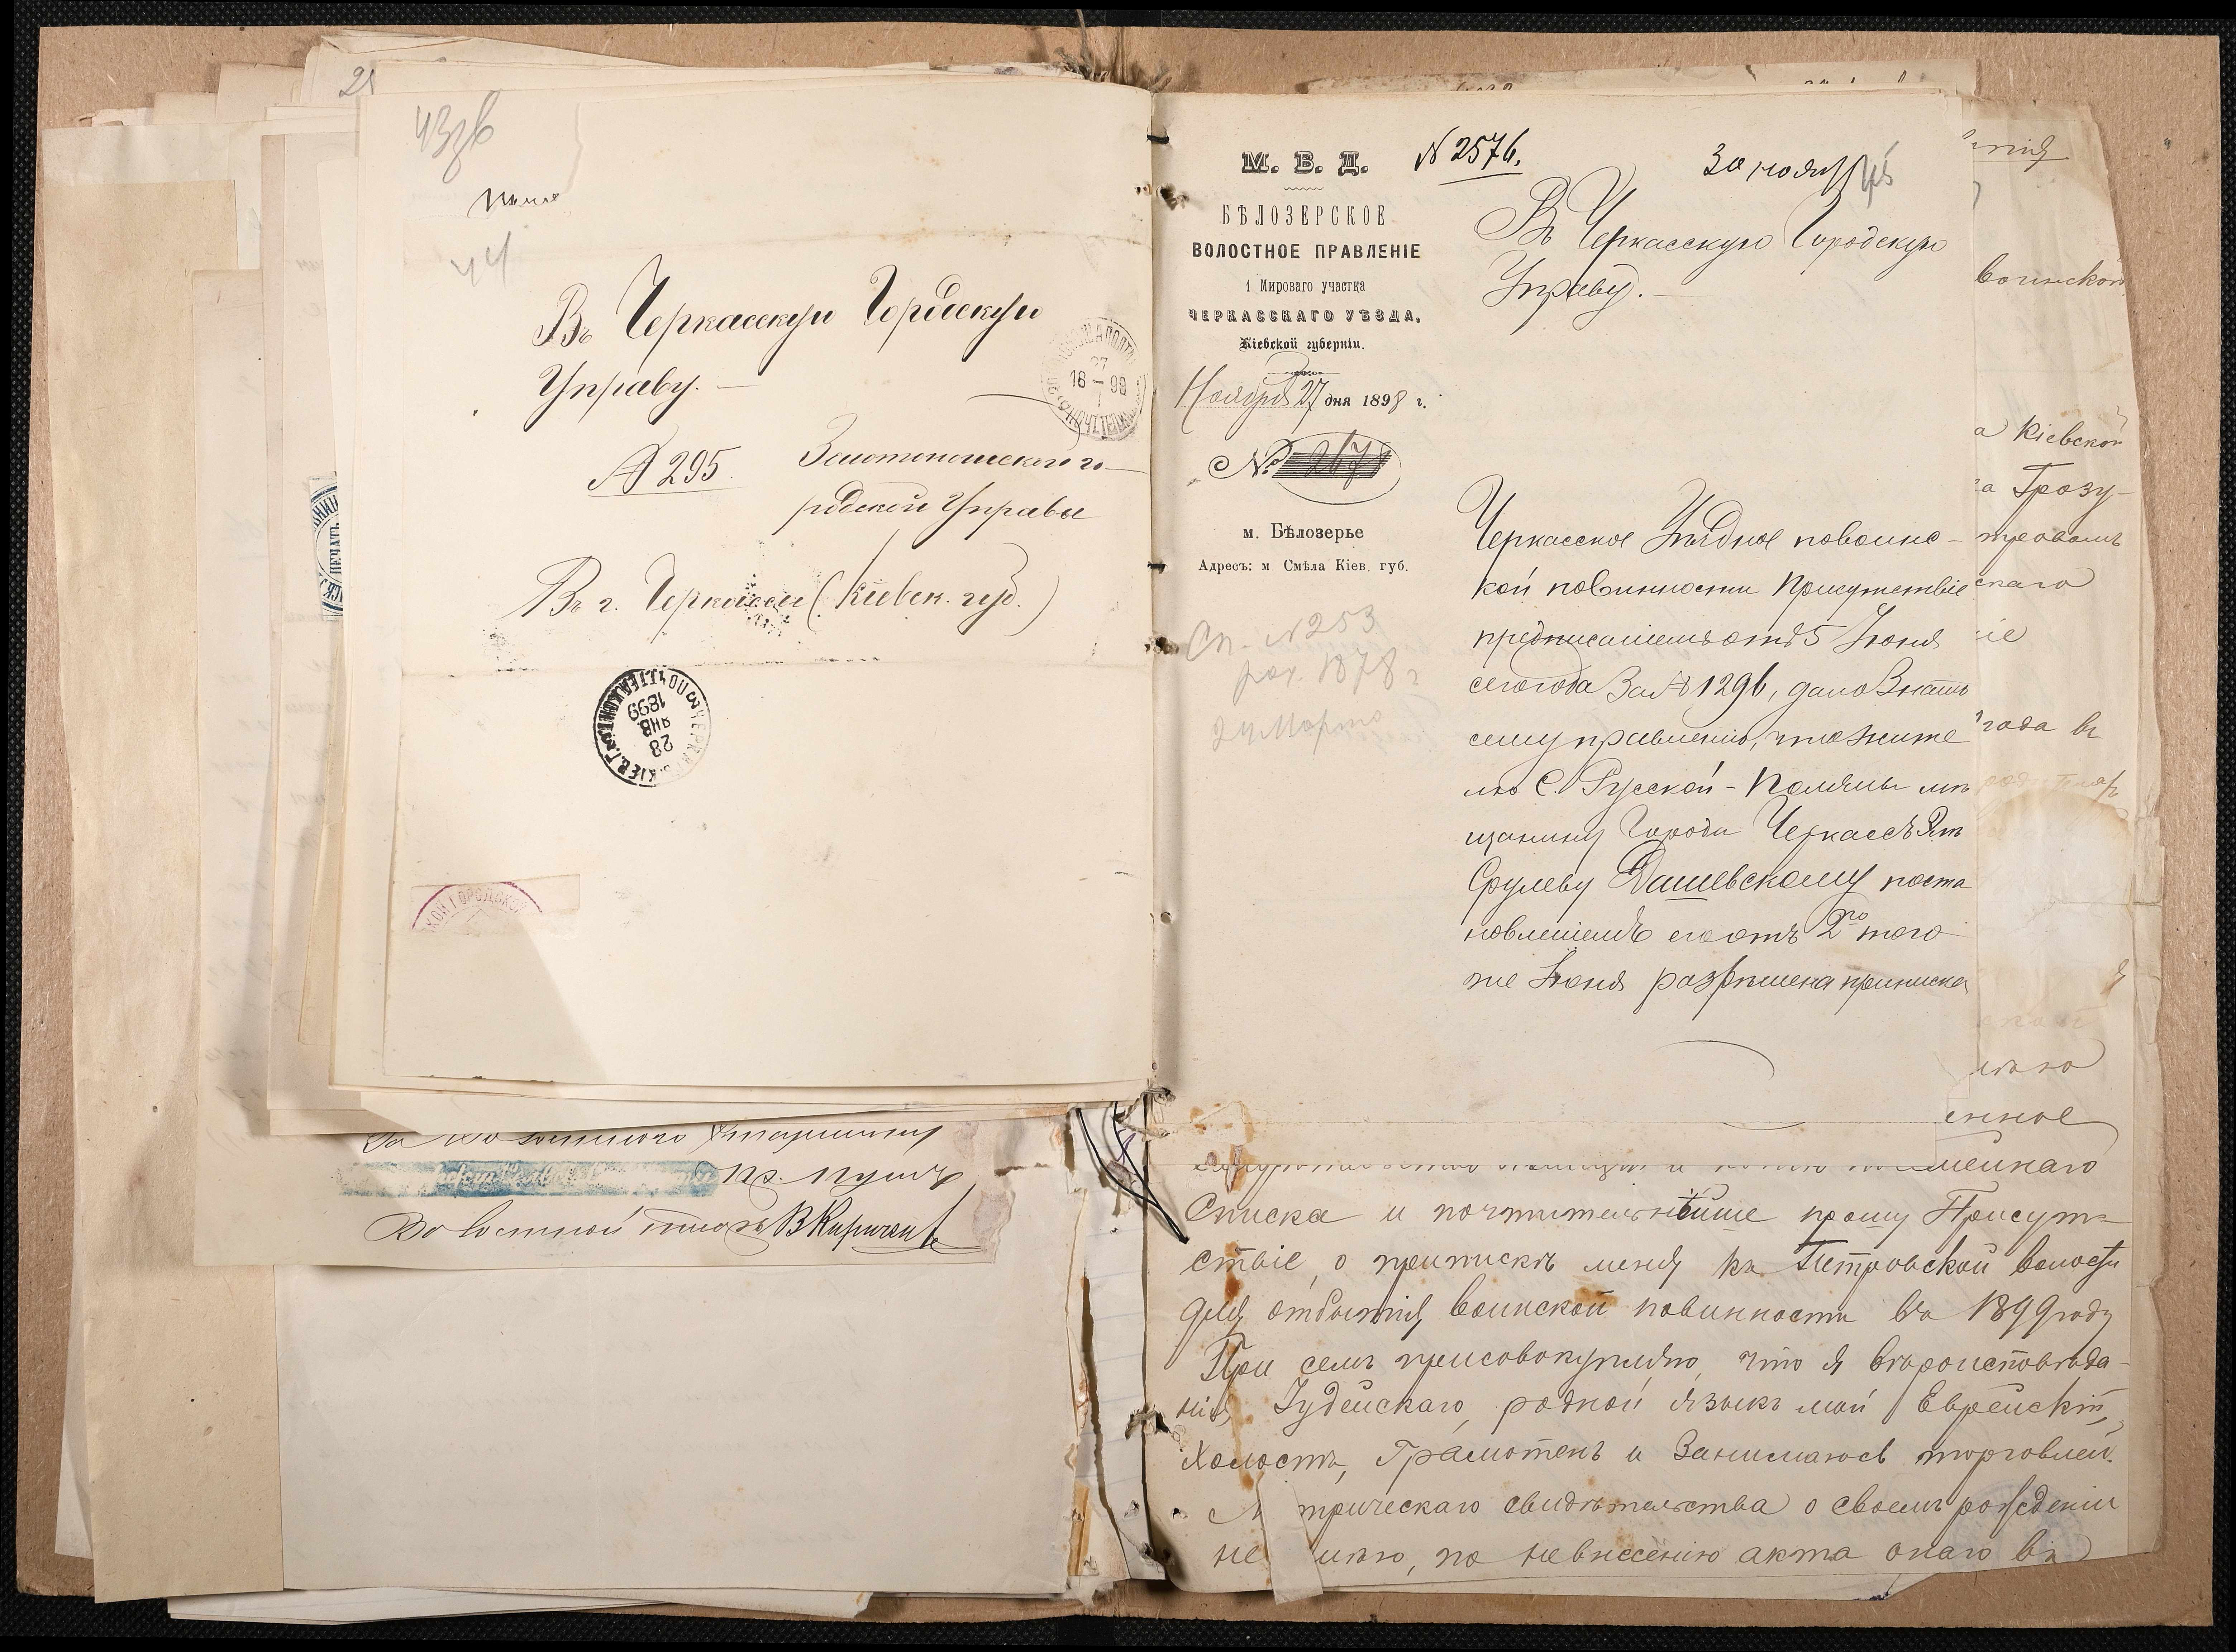 43зв
44
Въ Черкасскую Городскую
Управу.—
№ 295.
Золотоношской го-
родской Управы
Въ г. Черкассы (Кіевск. губ.)
18 — 99
ЯНВ.
28
1899
ГОРОДСКО
ПЕЧАТЬ
Волостной писарь
М. В. Д.
БѢЛОЗЕРСКОЕ
ВОЛОСТНОЕ ПРАВЛЕНІЕ
1 Мироваго участка
ЧЕРКАССКАГО УѢЗДА,
Кіевской губерніи.
Ноября 27 дня 1898 г.
№
м. Бѣлозерье
Адресъ: м Смѣла Кіев. губ.
Сп. № 253
1878 г
24 Марта
№ 2576.
30 ноября
45
Въ Черкасскую Городскую
Управу.—
Черкасское Уѣздное по воинс-
кой повинности Присутствіе
предписаніемъ отъ 5 Іюня
сего года За № 1296, дало Знать
сему правленію, что жите
лю С. Русской-Поляны мѣ
щанину Города Черкассъ
Срулеву Дашевскому поста
новленіемъ его отъ 2го того
же Іюня разрѣшена приписка
воинской
а Кіевской
Грозу-
скаго
іе
года въ
енное
Списка и почтительнѣйше прошу Присут-
ствіе, о припискѣ меня къ Петровской волости
для отбытія воинской повинности въ 1899 году
При семъ присовокупляю, что я вѣроисповѣда-
нія Іудейскаго, родной языкъ мой Еврейскій,
Холостъ, Грамотенъ и Занимаюсь торговлей.
М трическаго свидѣтельства о своемъ рожденіи
не имѣю, по невнесенію акта онаго въ